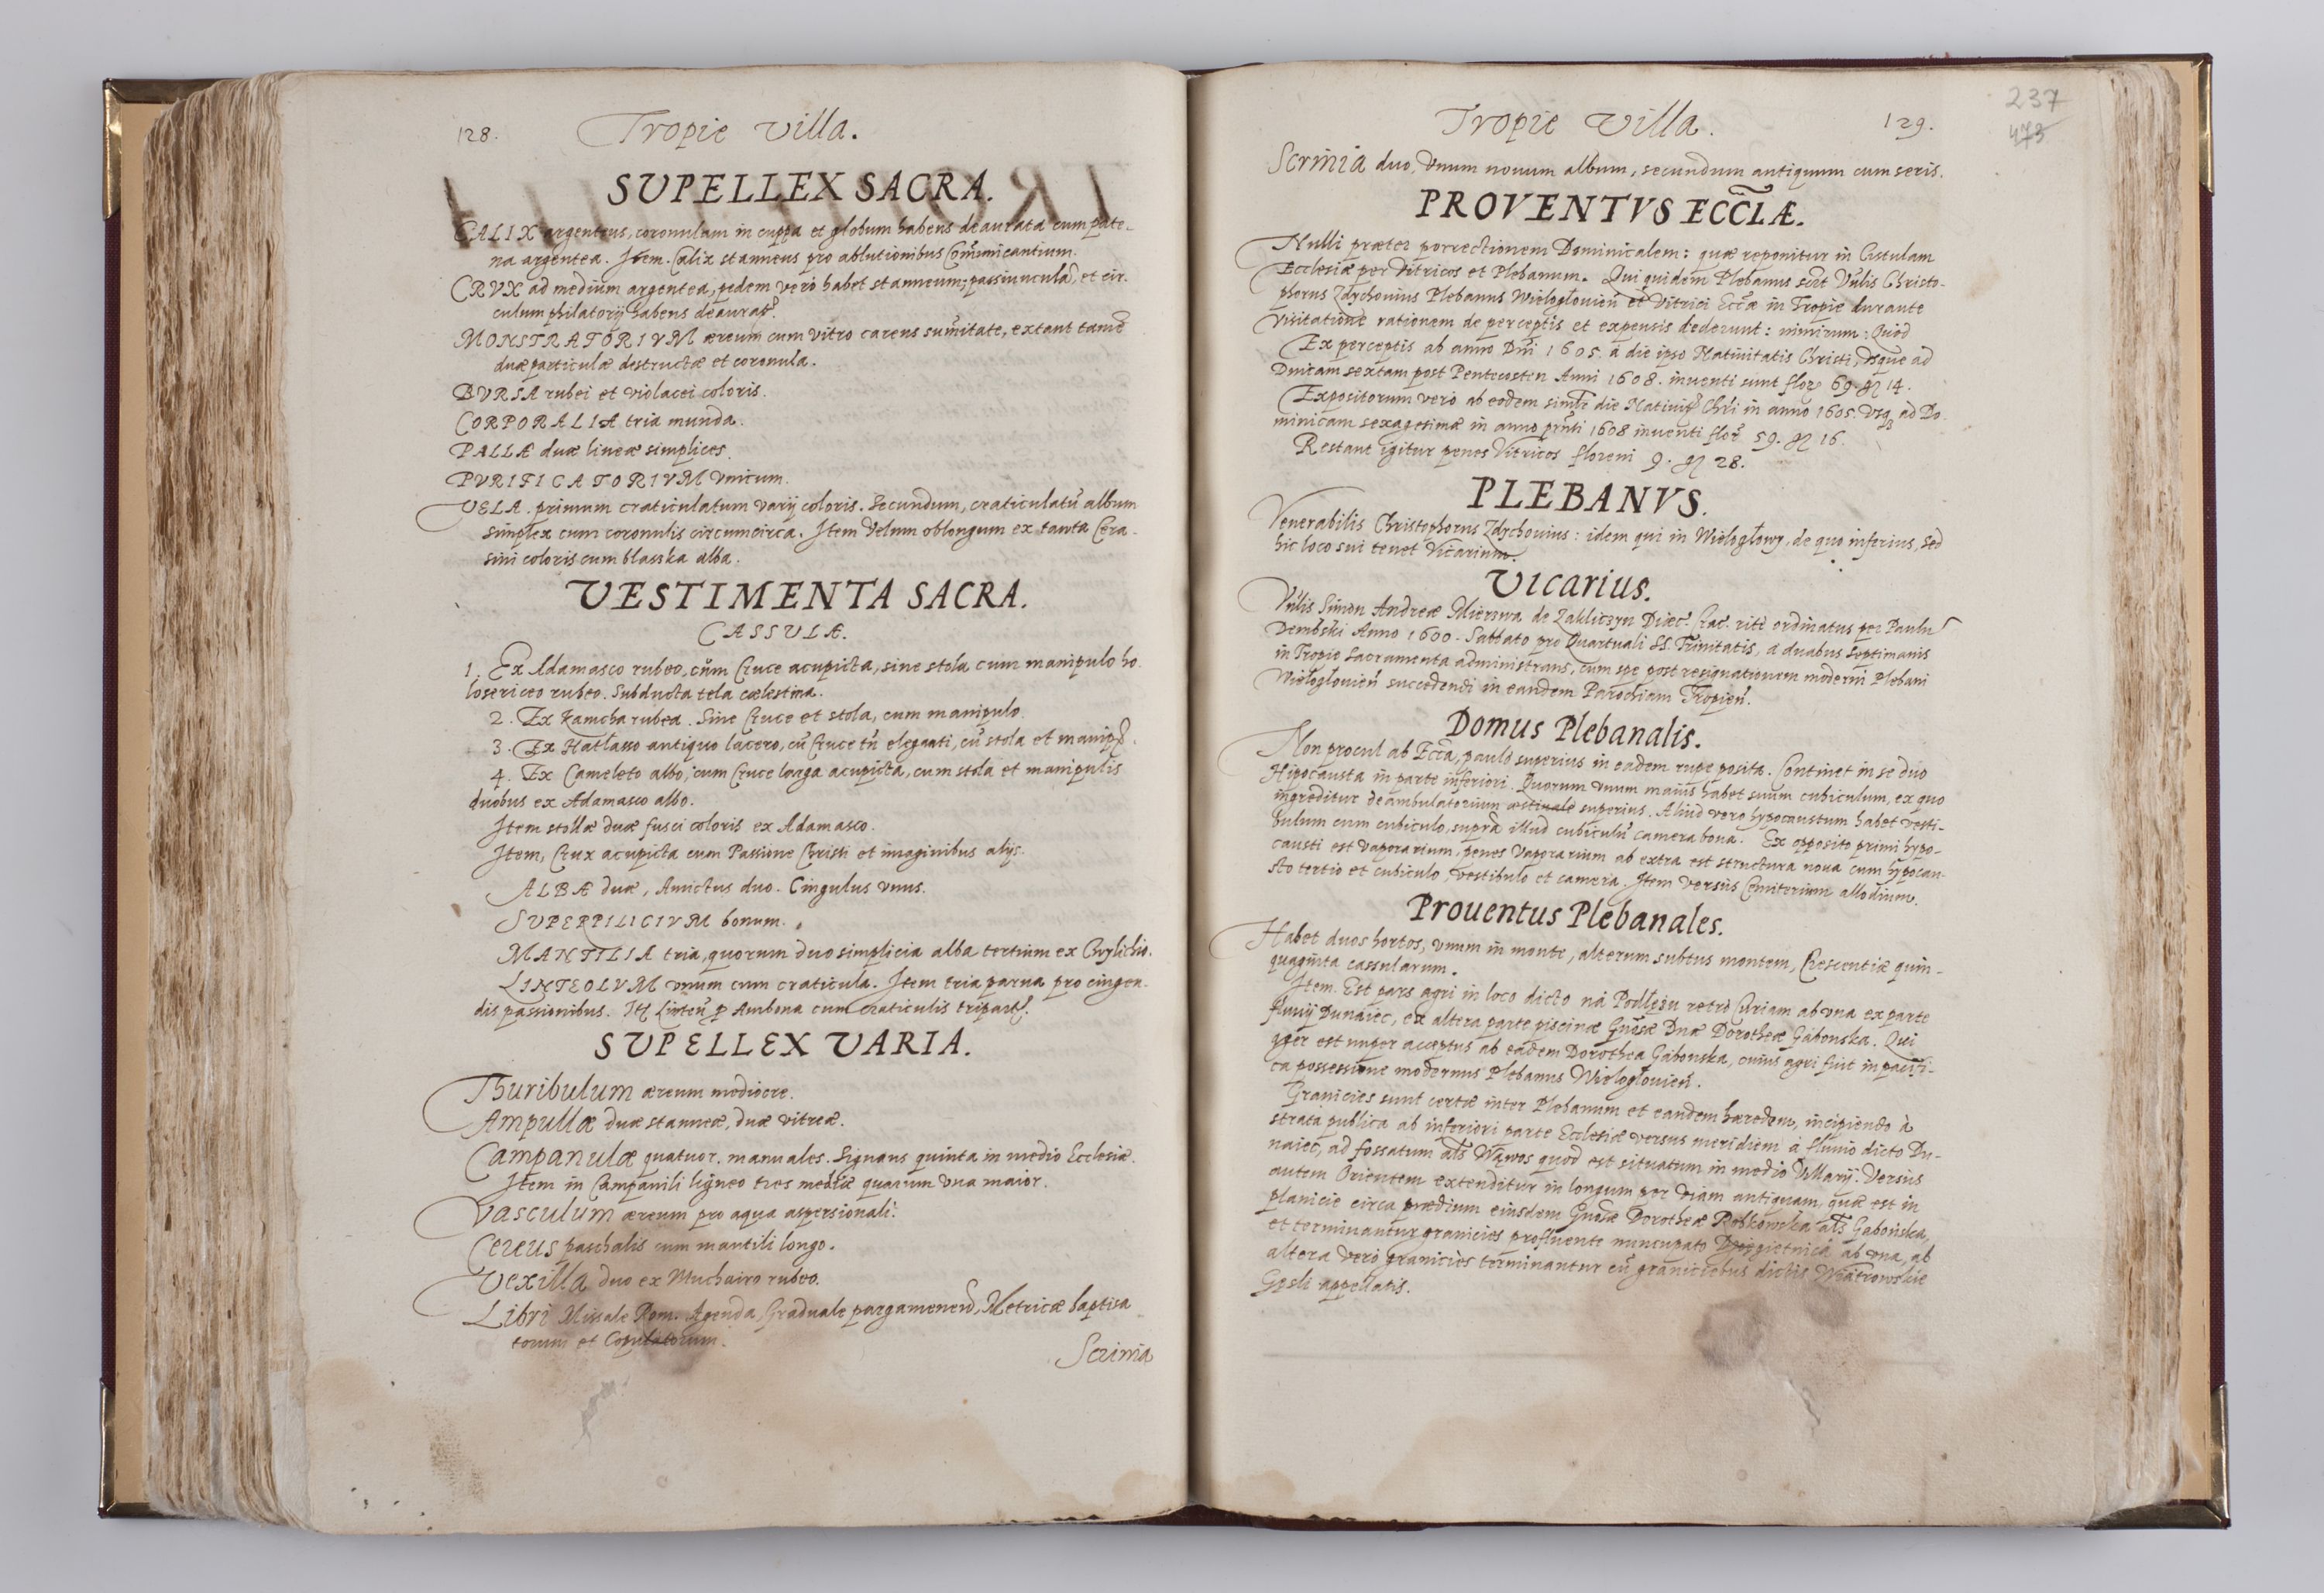 128.
Tropie villa.
SVPELLEX SACRA.
CALIX argenteus, coronulam in cuppa et globum habens deaurata cum pate-
na argentea. Item. Calix stanneus pro ablutionibus Cõmunicantium.
CRVX ad medium argentea, pedem verò habet stanneum, et cir-
culum philatorij habens deaurat.
MONSTRATORIVM æreum cum vitro carens sum̃itate, extant tamẽ
duæ particulæ destructæ et coronula.
BVRSA rubei et violacei coloris.
CORPORALIA tria munda.
PALLÆ duæ lineæ simplices.
PVRIFICATORIVM vnicum.
VELA. primum craticulatum varij coloris. Secundum, craticulatũ album
simplex cum coronulis circumcirca. Item Velum oblongum ex tanta Cera-
sini coloris cum blaska alba.
VESTIMENTA SACRA.
CASSULÆ.
1. Ex Adamasco rubeo, cum Cruce acupicta, sine stola, cum manipulo ho-
losericeo rubeo. Subducta tela cœlestina.
2. Ex Kamcha rubea. Sine Cruce et stola, cum manipulo.
3. Ex Hatłasso antiquo lacero, cũ Cruce tñ eleganti, cũ stola et manip.
4. Ex Cameleto albo, cum Cruce longa acupicta, cum stola et manipulis
duobus ex Adamasco albo.
Item stollæ duæ fusci coloris ex Adamasco.
Item, Crux acupicta cum Passione Christi et imaginibus alijs.
ALBÆ duæ, Amictus duo. Cingulus vnus.
SVPERPILICIVM bonum.
MANTILIA tria, quorum duo simplicia alba tertium ex Cwylichio.
LINTEOLVM vnum cum craticula. Item tria parua pro cingen-
dis passionibus. Itẽ Linteũ p Ambona cum craticulis tripart.
SVPELLEX VARIA.
Thuribulum æreum mediocre.
Ampullæ duæ stanneæ, duæ vitreæ.
Campanulæ quatuor. manuales. Signans quinta in medio Ecclesiæ.
Item in Campanili ligneo tres mediæ quarum vna maior.
Vasculum æreum pro aqua aspersionali.
Cereus paschalis cum mantili longo.
Vexilla duo ex Muchairo rubeo.
Libri Missale Rom. Agenda, Graduale pargamenen, Metricæ baptisa-
torum et Copulatorum.
Scrinia
Tropie villa.
129.
237
473
Scrinia duo, vnum nouum album, secundum antiquum cum seris.
PROVENTVS ECC̃LÆ.
Nulli præter porrectionem Dominicalem: quæ reponitur in Cistulam
Ecclesiæ per Vitricos et Plebanum. Qui quidem Plebanus Vñlis Christo-
phorus Zdrychouius Plebanus Wielogłouieñ et Vitrici Eccæ in Tropie durante
Visitatione rationem de perceptis et expensis dederunt: nimirum: Quod
Ex perceptis ab anno Dñi 1605. à die ipso Natiuitatis Christi, vsque ad
Dnicam sextam post Pentecosten Anni 1608. inuenti sunt flor 69. gr 14.
Expositorum verò ab eodem simłr die Natiuit Chri in anno 1605. vsq ad Do-
minicam sexagesimæ in anno pñti 1608 inuenti flor 59. gr 16.
Restant igitur penes Vitricos floreni 9. gr 28.
PLEBANVS.
Venerabilis Christophorus Zdrychouius: idem qui in Wielogłowy, de quo inferius, sed
hic loco sui tenet Vicarium.
Vicarius.
Vñlis Simon Andreæ Mierzwa de Zakliczyn Diœc. Crac. ritè ordinatus per Paulũ
Dembski Anno 1600. Sabbato pro Quartuali SS. Trinitatis, à duabus septimanis
in Tropie Sacramenta administrans, cum spe post resignationem moderni Plebani
Wielogłouień succedendi in eandem Parochiam Tropień.
Domus Plebanalis.
Non procul ab Eccła, paulò superius in eadem rupe posita. Continet in se duo
Hipocausta in parte inferiori. Quorum vnum maius habet suum cubiculum, ex quo
ingreditur deambulatorium æstiuale superius. Aliud vero hypocaustum habet vesti-
bulum cum cubiculo, supra illud cubiculũ camera bona. Ex opposito primi hypo-
causti est vaporarium, penes vaporarium ab extra est structura noua cum hypocau-
sto tertio et cubiculo, vestibulo et camera. Item versus Cœmiterium allodium.
Prouentus Plebanales.
Habet duos hortos, vnum in monte, alterum subtus montem, Crescentiæ quin-
quaginta cassularum.
Item. Est pars agri in loco dicto na Podłężu retrò Curiam ab vna ex parte
fluuij Dunaiec, ex altera parte piscinæ Gñosæ Dnæ Dorotheæ Gabonska. Qui
ager est nuper acceptus ab eadem Dorothea Gabonska, cuius agri fuit in pacifi-
ca possessione modernus Plebanus Wielogłouień.
Granicies sunt certæ inter Plebanum et eandem hæredem, incipiendo à
strata publica ab inferiori parte Ecclesiæ versus meridiem à fluuio dicto Du-
naiec, ad fossatum ałs Wąwos quod est situatum in medio Villarij. Versus
autem Orientem extenditur in longum per viam antiquam, quæ est in
planicie circa prædium eiusdem Gnosæ Dorotheæ Rożkowska ałs Gabonska,
et terminantur granicies profluente nuncupato ab vna, ab
altera verò granicies terminantur cũ graniciebus dictis Wiatrowskie
Gęśli appellatis.